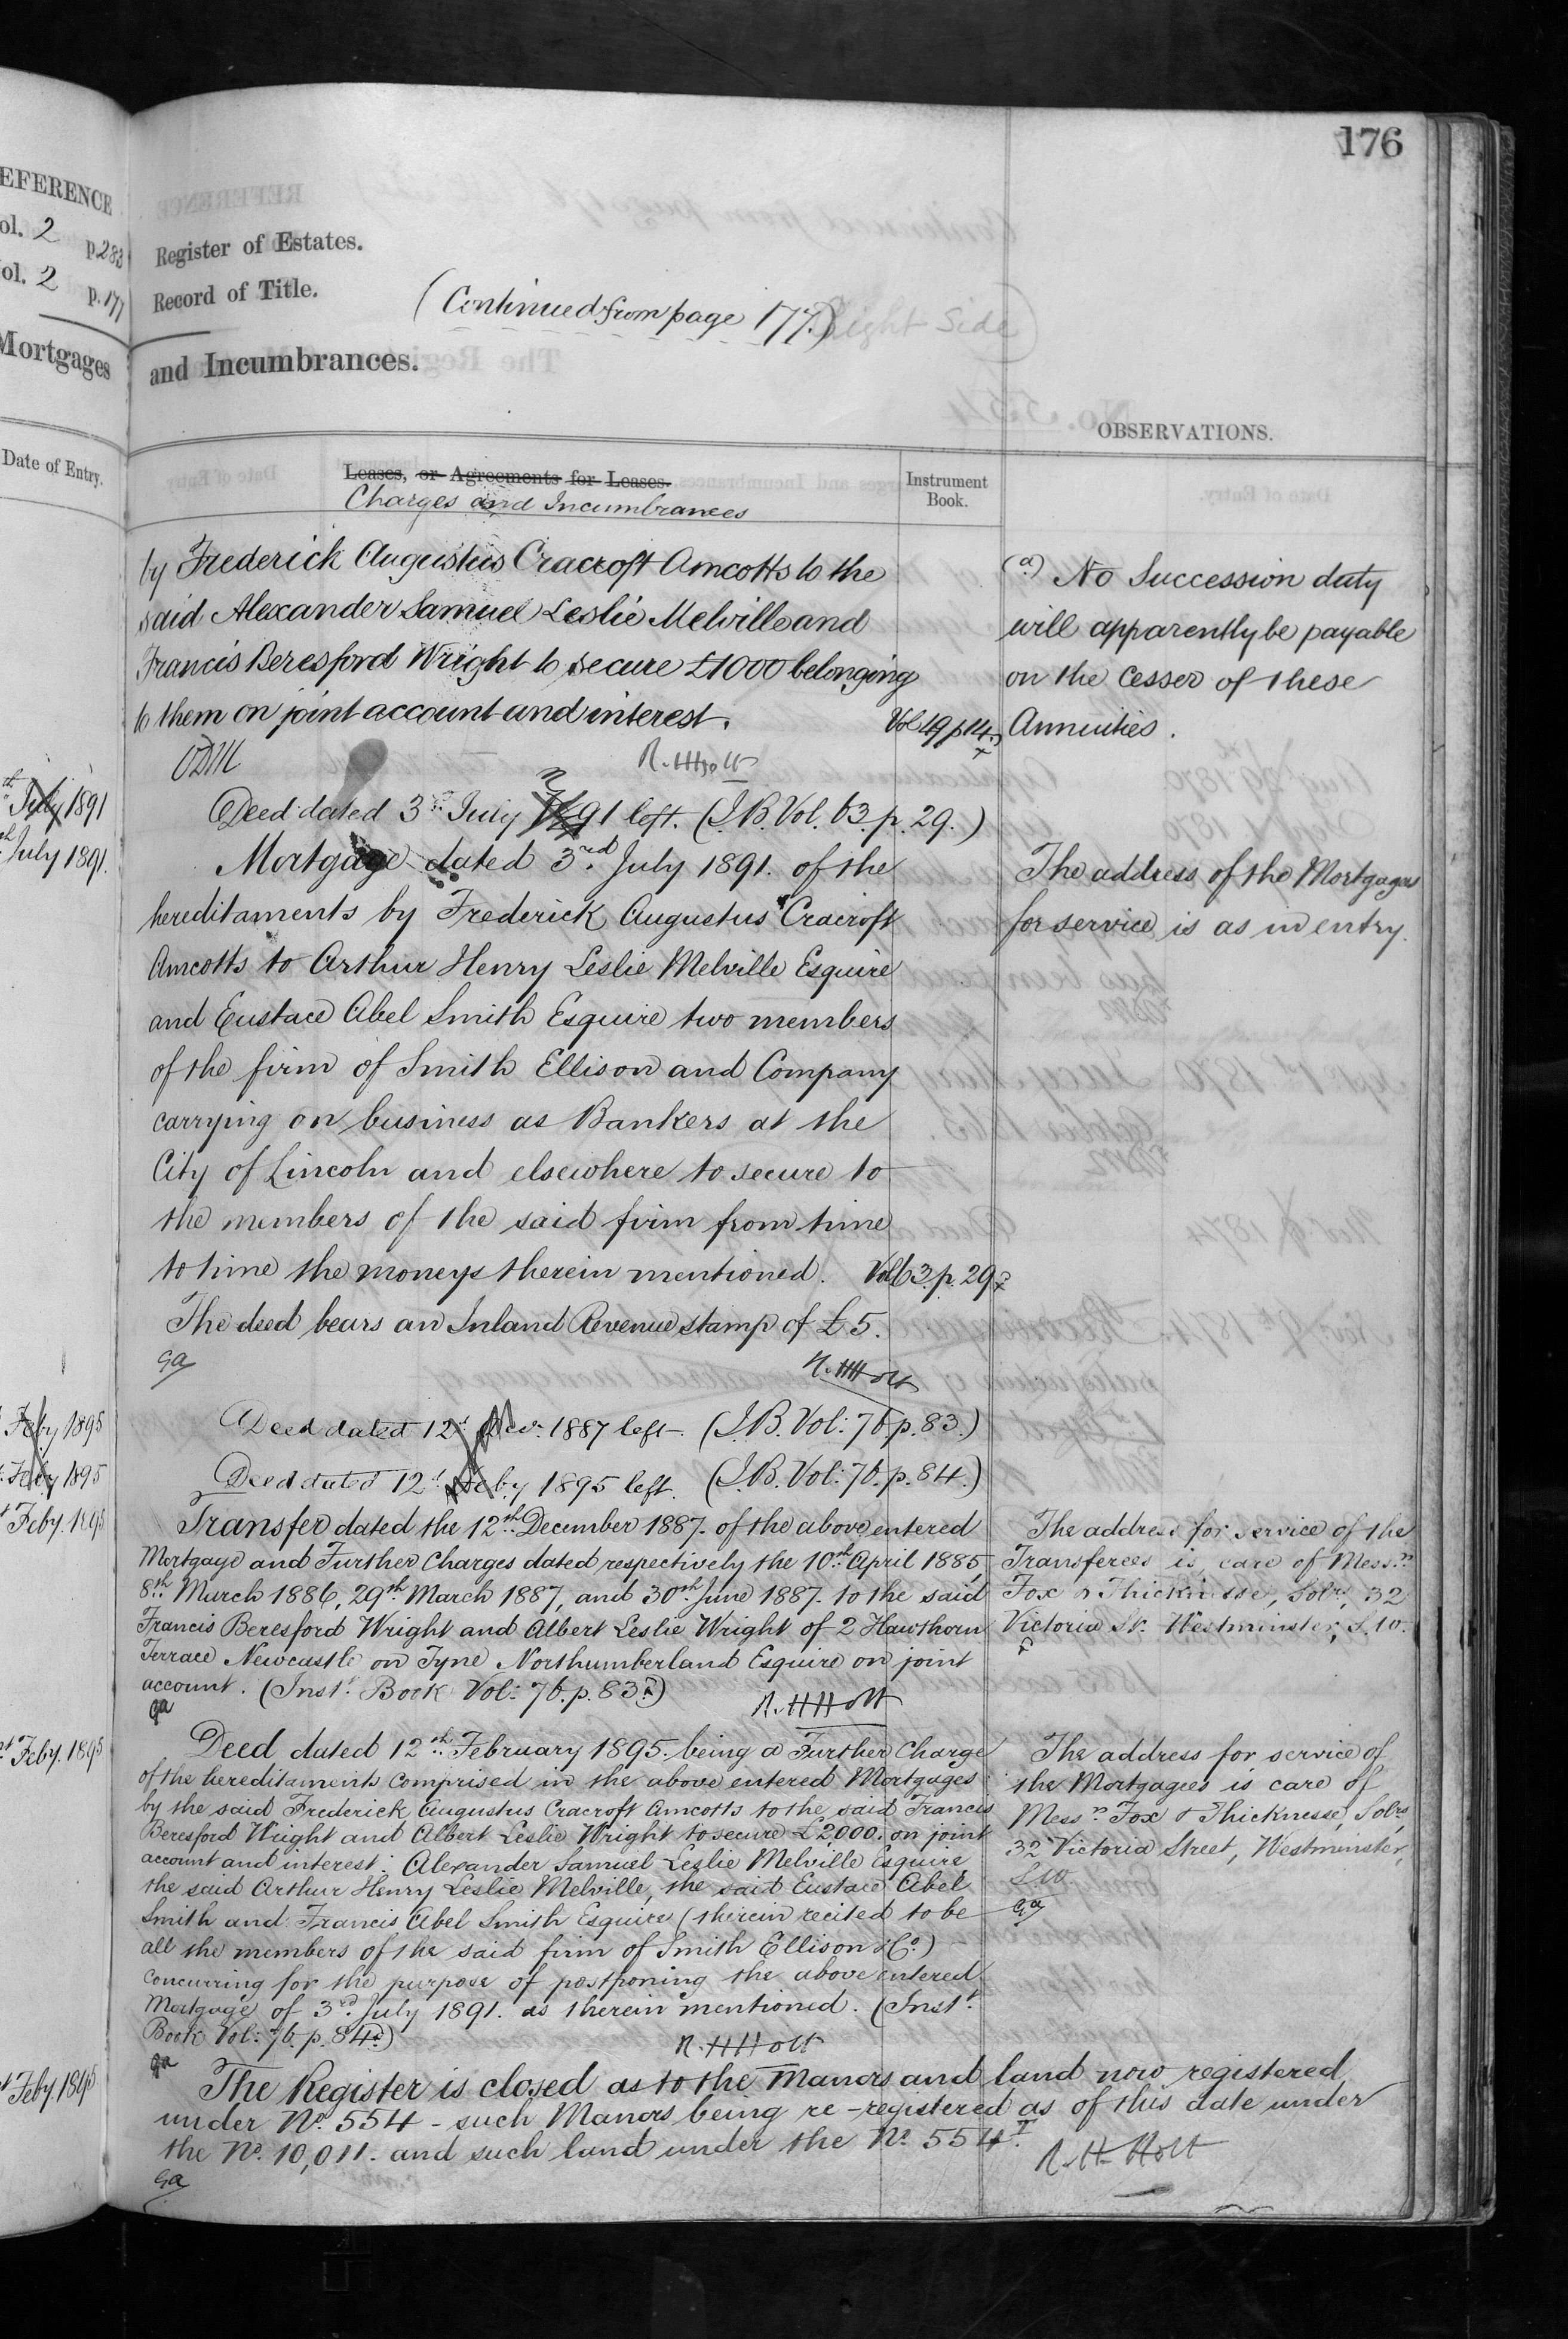 176
EFERENCE
ol. 2 p.283
ol. 2 p.177
Mortgages
Date of Entry.
Register of Estates.
Record of Title.
(Continued from page 177.)
Right Side
and Incumbrances.
OBSERVATIONS.
Leases, or Agreements for Leases.
Charges and Incumbrances
Instrument
Book.
by Frederick Augustus Cracroft Amcotts to the
said Alexander Samuel Leslie Melville and
Francis Beresford Wright to secure £1000 belonging
to them on joint account and interest. Vol 49 p 14
(a) No Succession duty
will apparently be payable
on the Cesser of these
Annuities.
R. H. Holt
July 1891
Deed dated 3rd July 1891 left. (I.B. Vol. 63. p. 29.)
July 1891.
Mortgage dated 3rd July 1891. of the
hereditaments by Frederick Augustus Cracroft
Amcotts to Arthur Henry Leslie Melville Esquire
and Eustace Abel Smith Esquire two members
of the firm of Smith Ellison and Company
carrying on business as Bankers at the
City of Lincoln and elsewhere to secure to
the members of the said firm from time
to time the moneys therein mentioned. Vol 63. p. 29
The deed bears an Inland Revenue stamp of £5.
The address of the Mortgagees
for service is as in entry.
ga
R. H. Holt
Feby 1895
Deed dated 12th Decr. 1887 left. (I.B. Vol: 76. p. 83.)
Feby 1895
Deed dated 12th Feby 1895 left. (I.B. Vol: 76. p. 84.)
Feby. 1895
Transfer dated the 12th December 1887. of the above entered
Mortgage and Further Charges dated respectively the 10th April 1885,
8th March 1886, 29th March 1887, and 30th June 1887. to the said
Francis Beresford Wright and Albert Leslie Wright of 2 Hawthorn
Terrace Newcastle on Tyne Northumberland Esquire on joint
account. (Inst. Book Vol: 76. p. 83)
The address for service of the
Transferees is, care of Messrs
Fox & Thicknesse, Solrs, 32
Victoria St. Westminster, S.W.
ga
R. H. Holt
Feby. 1895
Deed dated 12th February 1895. being a Further Charge
of the hereditaments comprised in the above entered Mortgages
by the said Frederick Augustus Cracroft Amcotts to the said Francis
Beresford Wright and Albert Leslie Wright to secure £2,000. on joint
account and interest: Alexander Samuel Leslie Melville Esquire,
the said Arthur Henry Leslie Melville, the said Eustace Abel
Smith and Francis Abel Smith Esquire (therein recited to be
all the members of the said firm of Smith Ellison & Co.)
concurring for the purpose of postponing the above entered
Mortgage of 3rd July 1891. as therein mentioned. (Inst.
Book Vol: 76. p. 84)
The address for service of
the Mortgagees is care of
Messrs Fox & Thicknesse, Solrs,
32 Victoria Street, Westminster,
S.W.
ga
R. H. Holt
ga
Feby. 1895
The Register is closed as to the Manors and land now registered
under No. 554 - such Manors being re-registered as of this date under
the No. 10,011. and such land under the No. 554 I.
R. H. Holt
ga